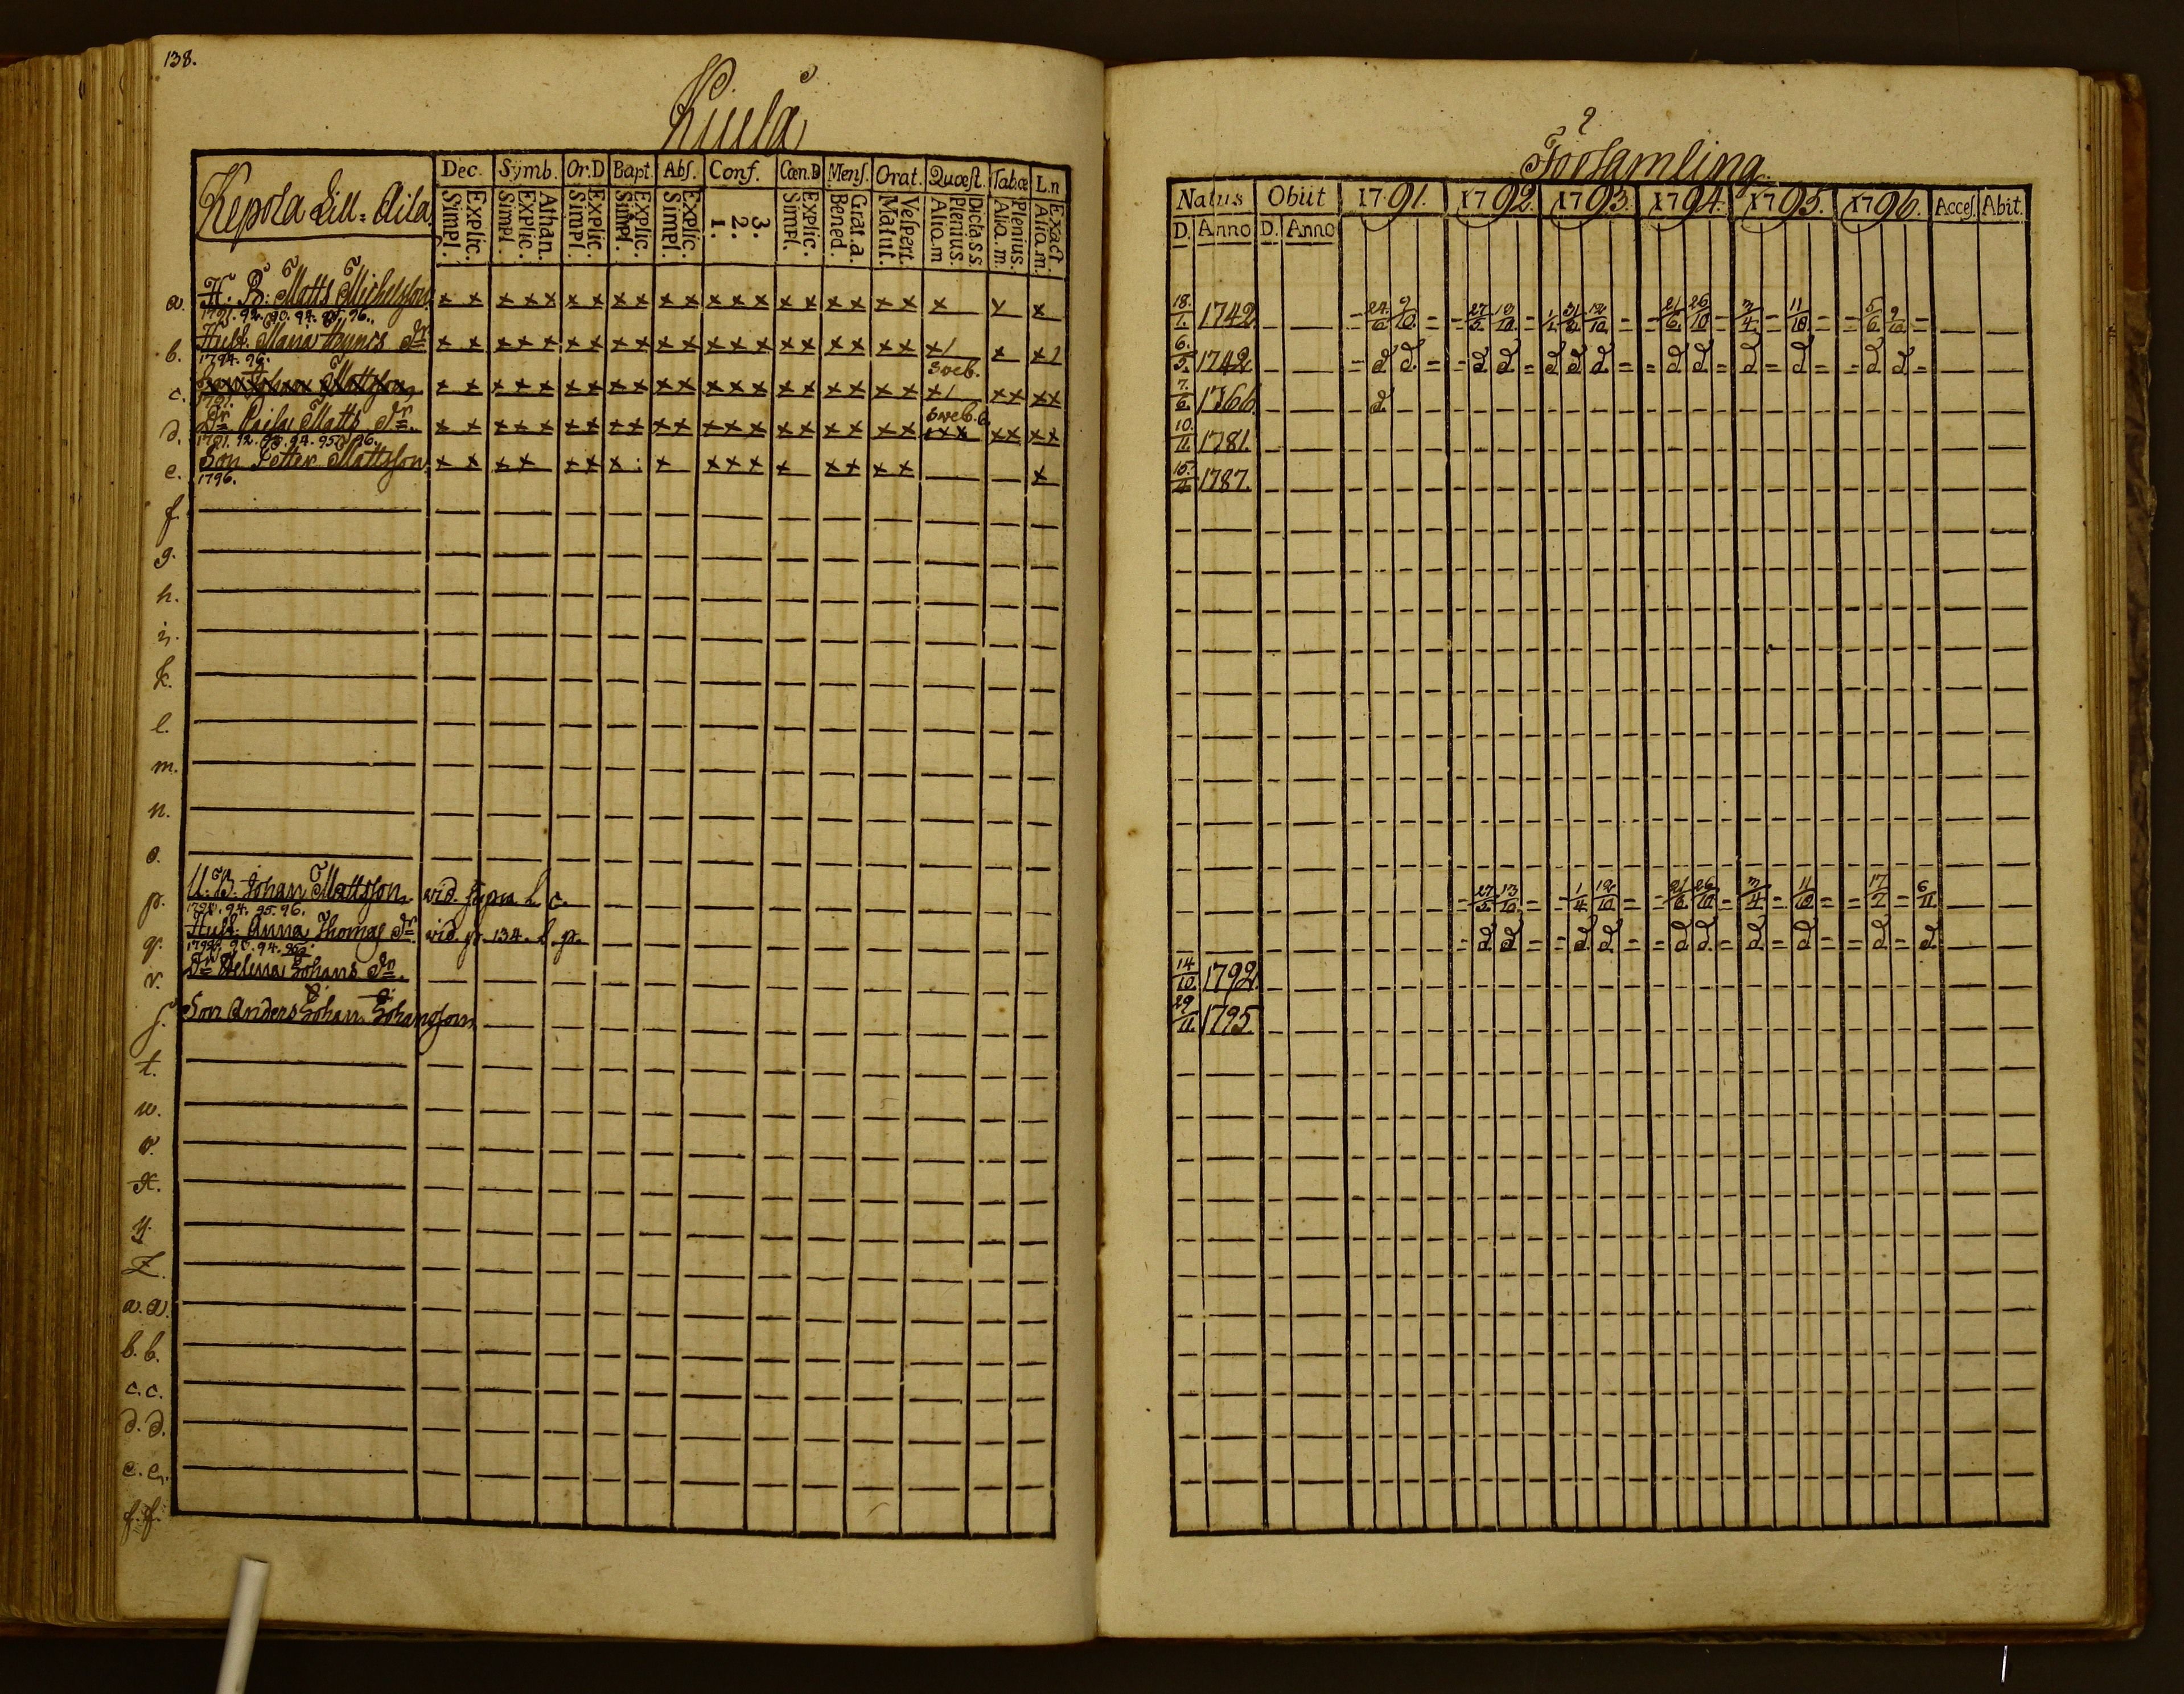 138.
Kiula
Kepola Lill-Aila
Dec. Symb. Or.D Bapt. Abs. Conf. Cœn.D Mens. Orat. Quæst. Tab.æ L.n
Simpl. Explic. Simpl. Explic. Athan. Simpl. Explic. Simpl. Explic. Simpl. Explic. 1. 2. 3. Simpl. Explic. Bened. Grat.a. Matut. Vespert. Alia.m Plenius. Dicta S.S. Alia.m. Plenius. Alia.m. Exact.
a. H. B. Matts Michelsson x x x x x x x x x x x x x x x x x x x x x
1791. 92. 93. 94. 95. 96.
b. Hust. Maria Hannes dr x x x x x x x x x x x x x x x x x x
1794. 96.
Sveb.
c. Son Johan Mattsson x x x x x x x x x x x x x x x x x x
1791.
Sveb.
d. dr Caisa Matts dr x x x x x x x x x x x x x x x x x x
1791. 92. 93. 94. 95. 96.
e. Son Petter Mattsson x x x x x x x x x x x x x x x x x
1796.
f.
g.
h.
i.
k.
l.
m.
n.
o.
p. U. B. Johan Mattsson vid. supra l. c.
94. 95. 96.
q. Hust. Anna Thomas dr vid. p. 134. l. p.
r. dr Helena Johans dr
s. Son Anders Johan Johansson
t.
u.
v.
x.
y.
z.
a.a.
b.b.
c.c.
d.d.
e.e.
f.f.
Församling
Natus Obiit 1791. 1792. 1793. 1794. 1795. 1796. Acces. Abit.
D. Anno D. Anno
18/1. 1742 24/6 9/10 27/5 13/10 21/6 26/10 3/4 11/10 5/6 9/10
6/5. 1742 d d. d d. d d d. d d. d d d d.
7/6. 1766 d.
10/11 1781.
15/4 1787.
27/5 13/10 1/4 12/10 21/6 26/10 3/4 11/10 17/2 6/11
d. d d. d. d d. d d d. d.
14/10. 1792.
29/11. 1795.